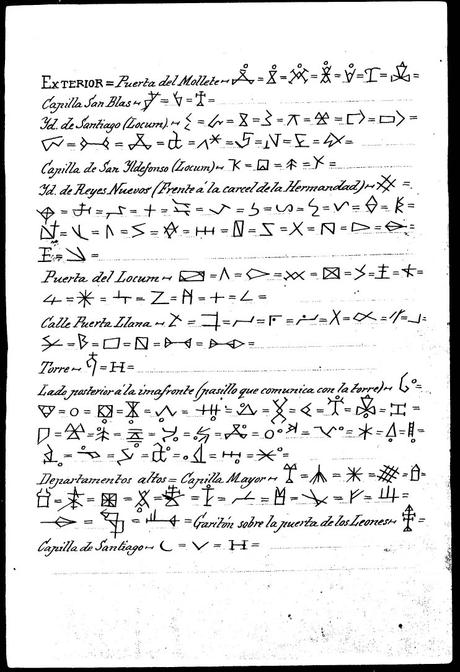 EXTERIOR = Puerta del Mollete
Capilla San Blas
Yd. de Santiago (Locum)
Capilla de San Yldefonso (Locum)
Yd. de Reyes Nuevos (Frente á la carcel de la Hermandad)
Puerta del Locum
Calle Puerta Llana
Torre
Lado posterior á la imafronte (pasillo que comunica con la torre)
Departamentos altos = Capilla Mayor
Garitón sobre la puerta de los Leones
Capilla de Santiago